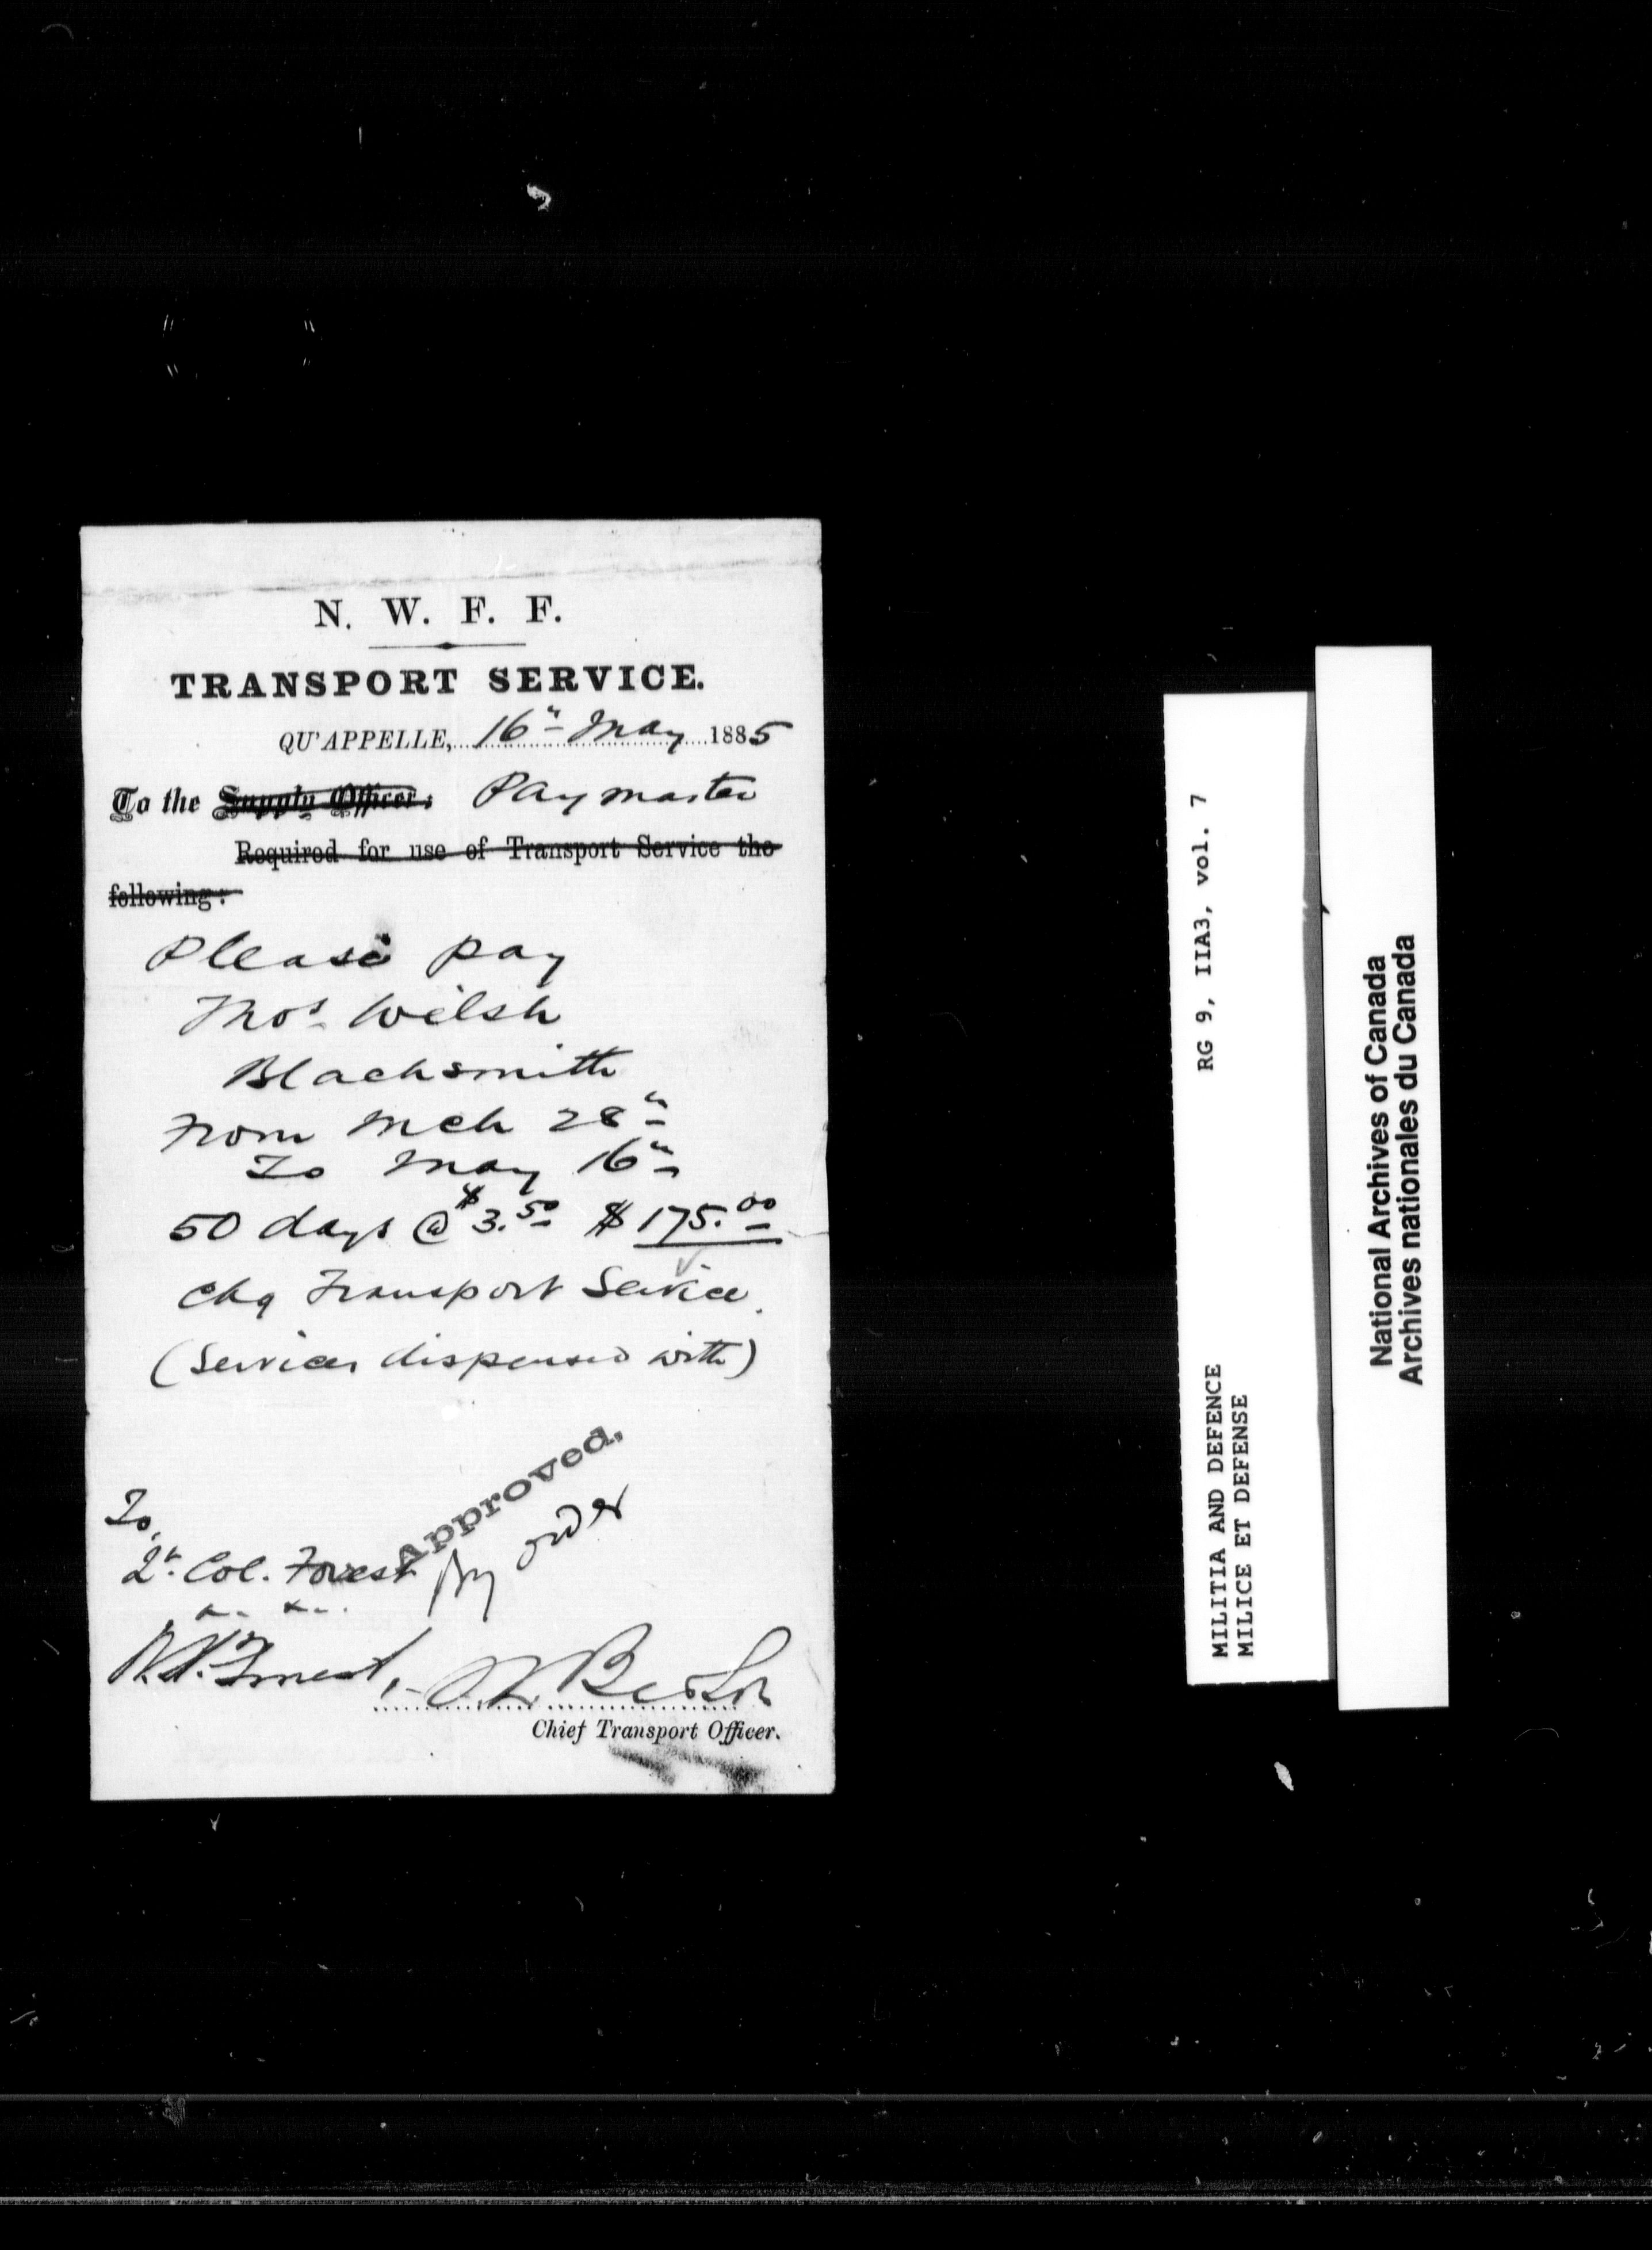 N. W. F. F.
TRANSPORT SERVICE.
QU'APPELLE, 16th May 1885
To the Supply Officer: Paymaster
Required for use of Transport Service the
following:
Please pay
Thos Welsh
Blacksmith
From Mch 28th
To May 16th
50 days @ $3.50 $175.00
Chg Transport Service.
(Services dispensed with)
Approved.
By order
To,
Lt. Col. Forest
Chief Transport Officer.
RG 9, IIA3, vol. 7
MILITIA AND DEFENCE
MILICE ET DEFENSE
National Archives of Canada
Archives nationales du Canada